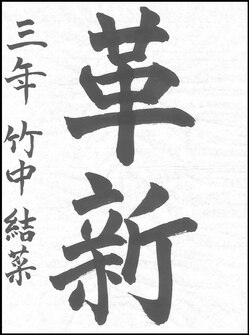 革新
三年 竹中 結菜